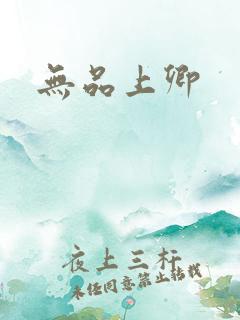 無品上卿
夜上三杆
未经同意禁止转载